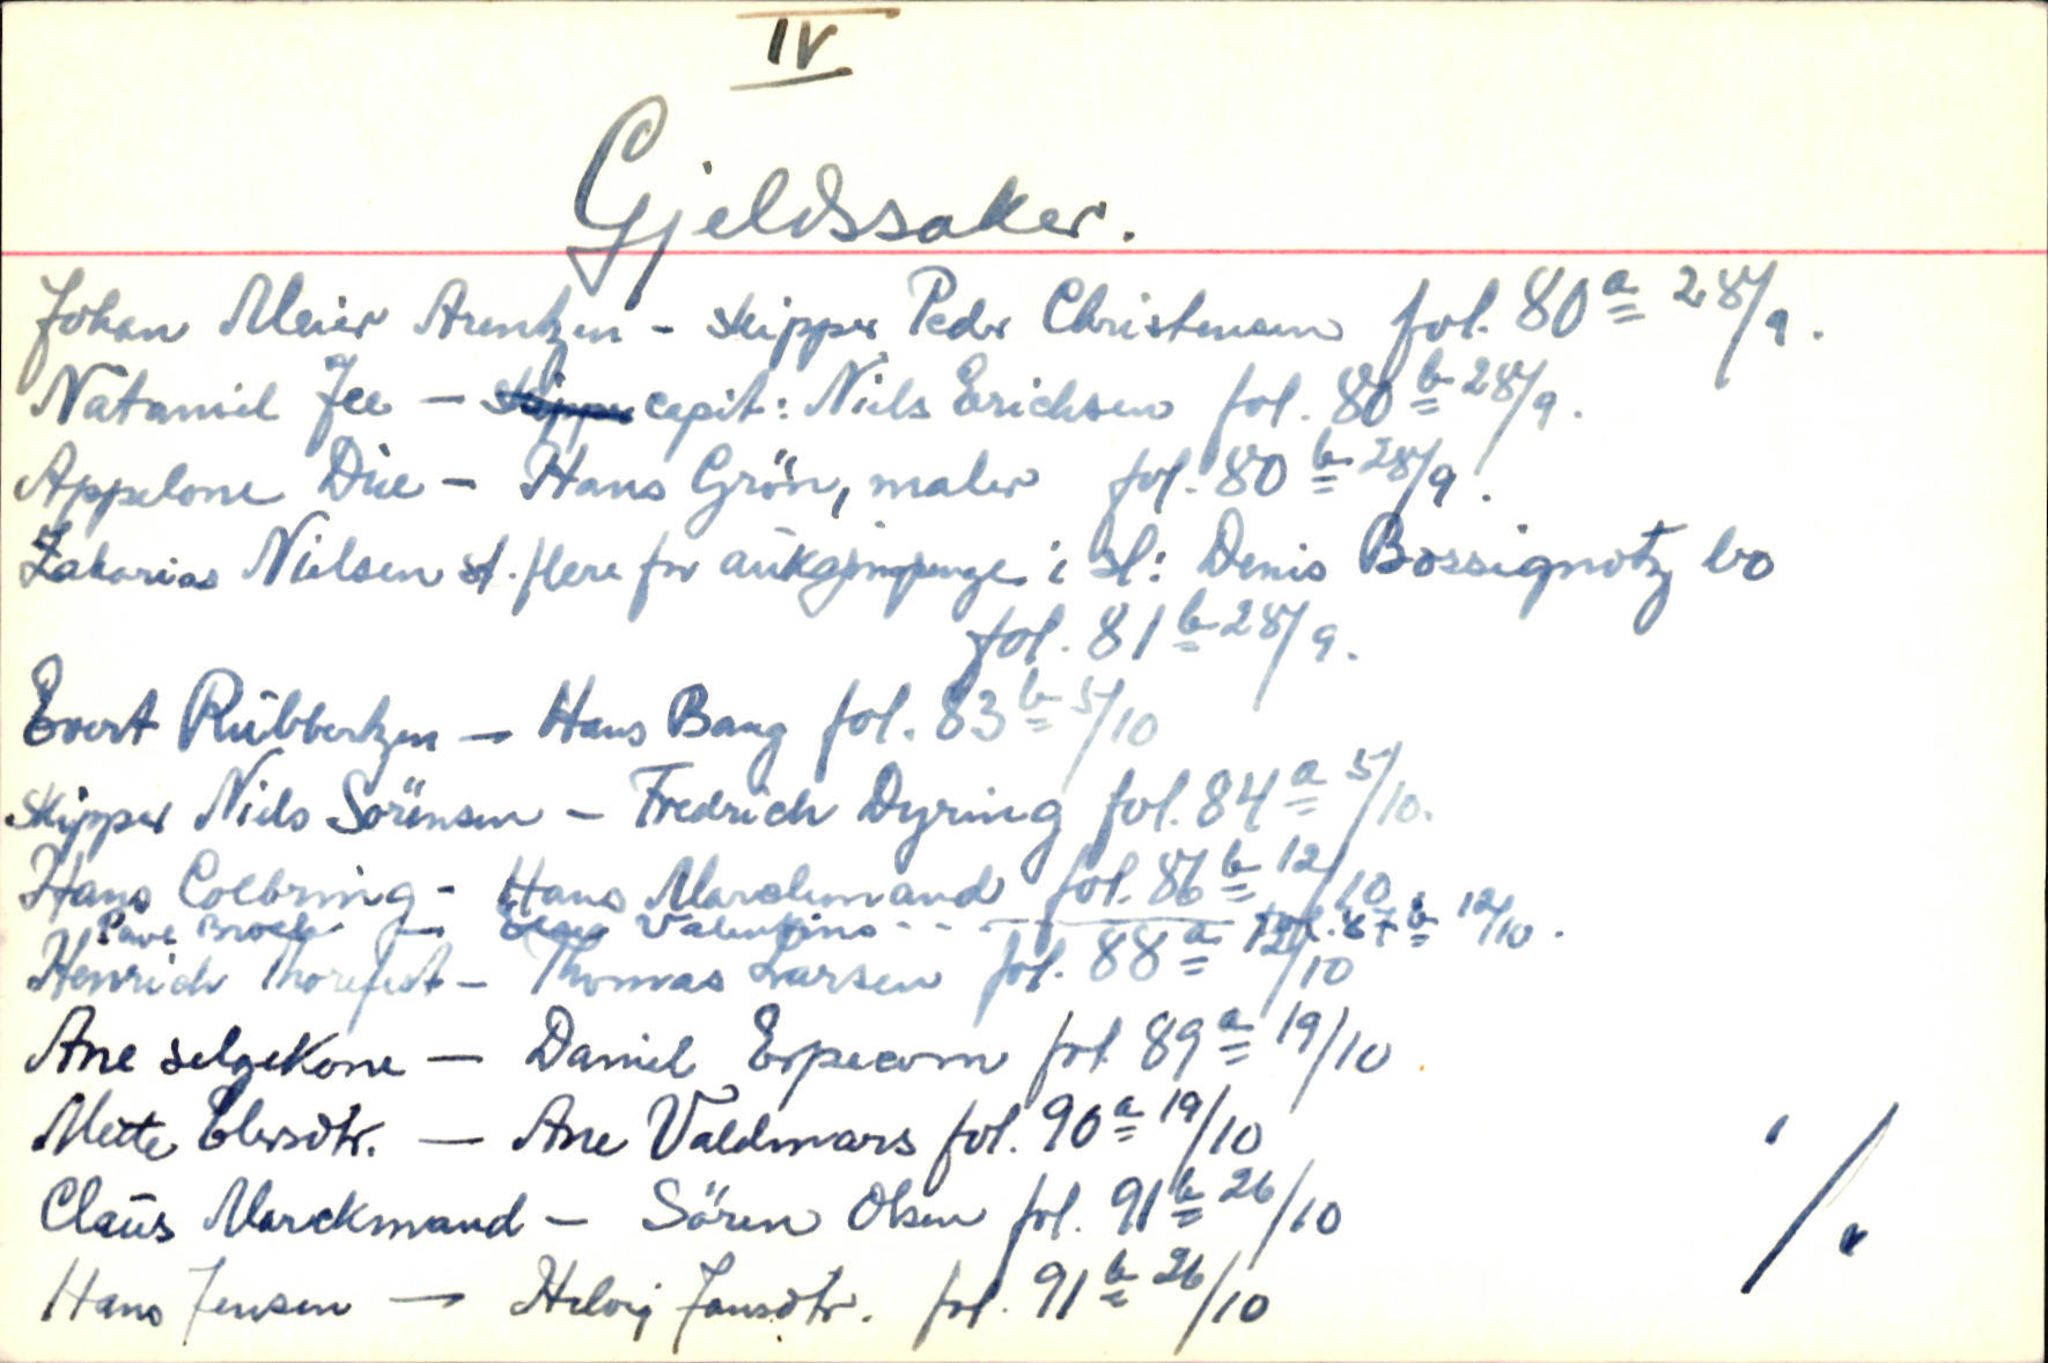 IV
Gjeldssaker.
Johan Meier Arentzen - skipper Peder Christensen fol. 80a 28/9.
Nataniel Jee - capit: Niels Erichsen fol. 80b 28/9.
Appelone Die - Hans Grön, maler fol. 80b 28/9.
Zakarias Nielsen st. flere for i sl: Denis Bossignotz bo
fol. 81b 28/9.
Evert Rübbertzen - Hans Bang fol. 83b 5/10
skipper Niels Sörensen - Fredrich Dyring fol. 84a 5/10.
Hans Colbring - Hans Marckmand fol. 86b 12/10
Pave Brock - Valentins - - - fol. 87b 12/10.
Henrich - Thomas Larsen fol. 88a 12/10
Ane selgekone - Daniel Erpecom fol. 89a 19/10
Mette Elersdtr. - Ane Valdmars fol. 90a 19/10
Claus Marckmand - Sören Olsen fol. 91b 26/10
Hans Jensen - Helvig Jansdtr. fol. 91b 26/10